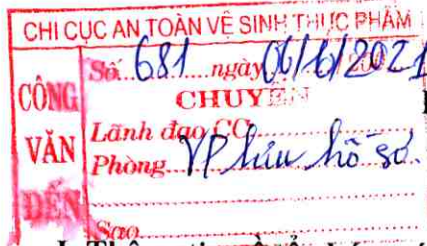 CHI CỤC AN TOÀN VỆ SINH THỰC PHẨM
CÔNG VĂN ĐẾN
Số 681 ngày 06/6/2021
CHUYỂN
Lãnh đạo CC
Phòng VP lưu hồ sơ.
Sao